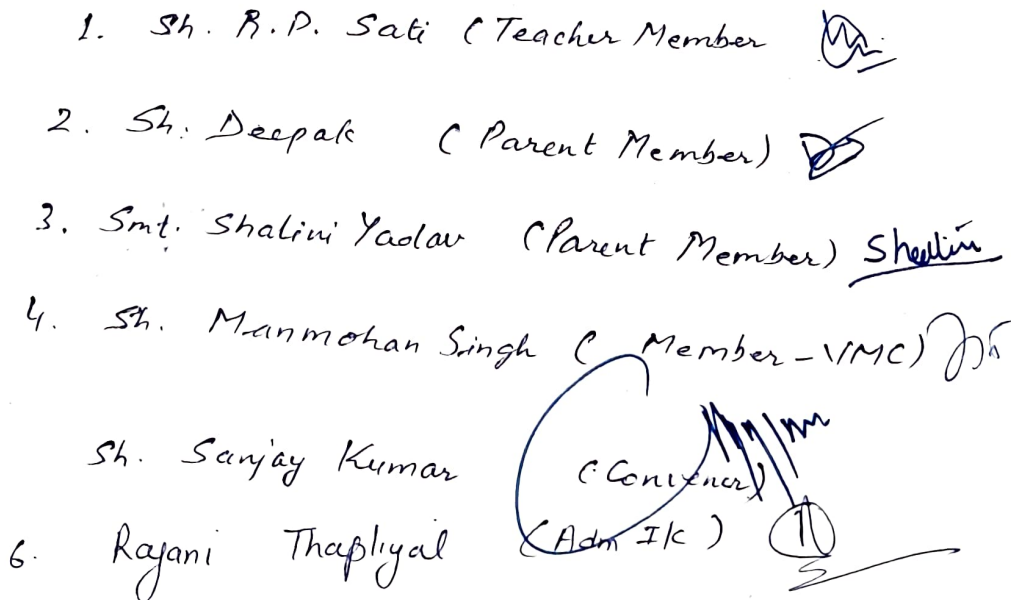 1. Sh. R.P. Sati (Teacher Member
2. Sh. Deepak (Parent Member)
3. Smt. Shalini Yadav (Parent Member) Shalini
4. Sh. Manmohan Singh (Member-VMC)
Sh. Sanjay Kumar (Convenor)
6. Rajani Thapliyal (Adm I/C)